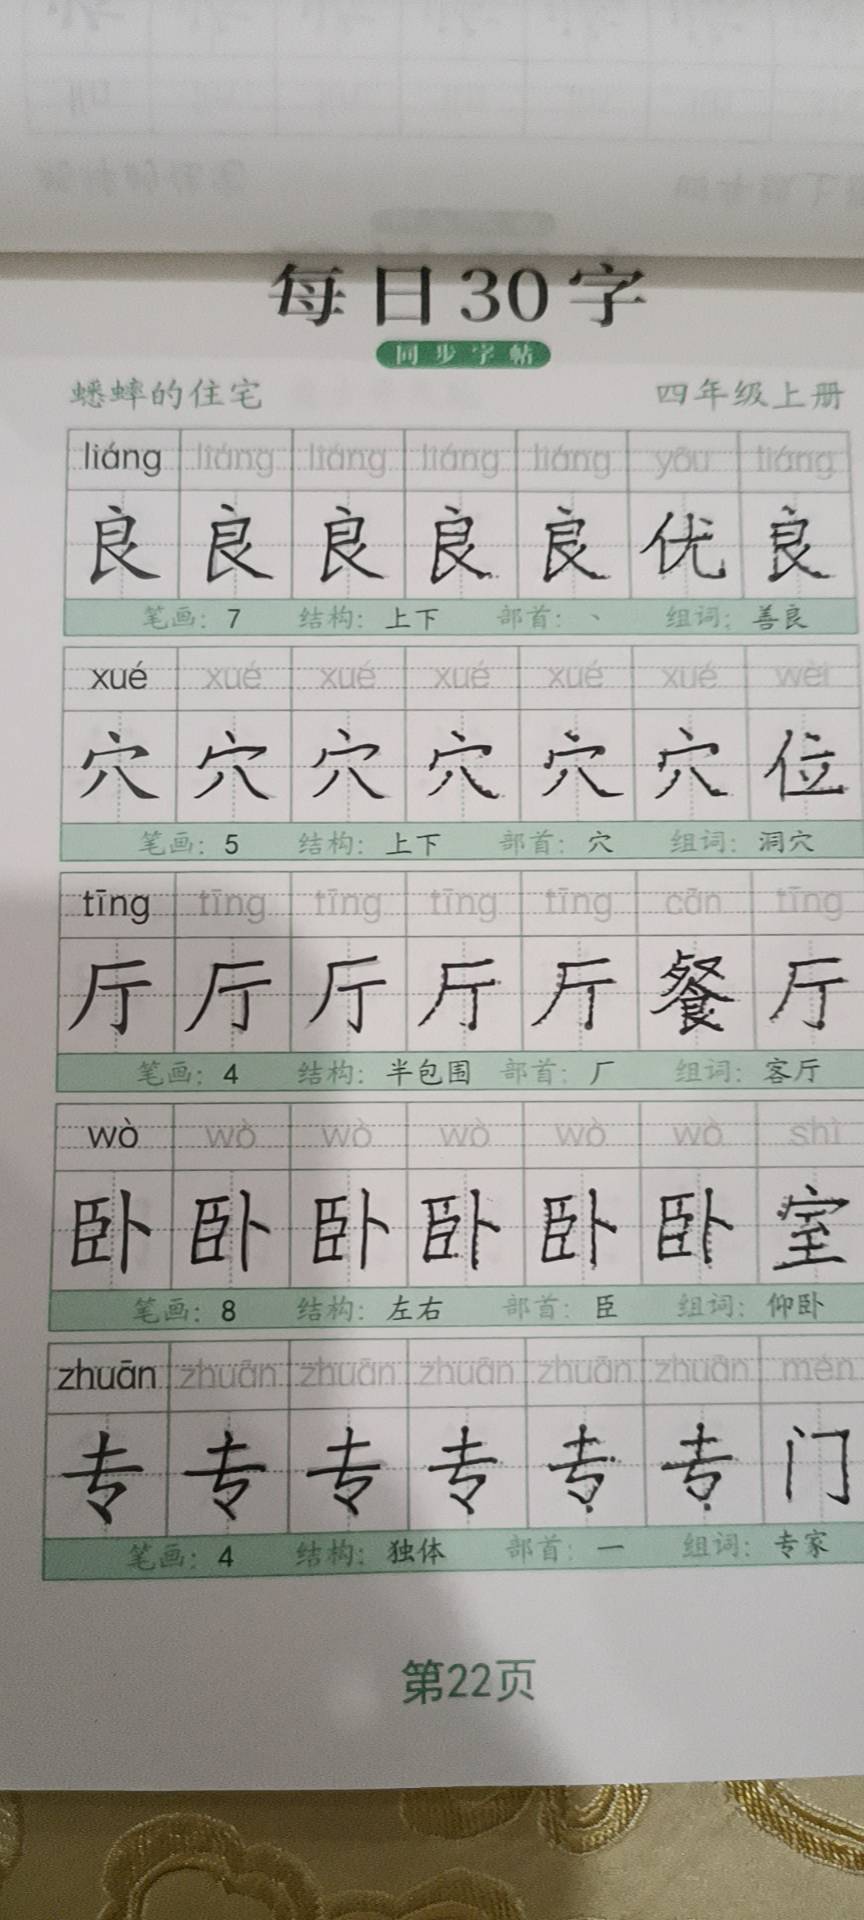 每日30字
同步字帖
蟋蟀的住宅 四年级上册
liáng liáng liáng liáng liáng yōu liáng
良 良 良 良 良 优 良
笔画：7 结构：上下 部首：丶 组词：善良
xué xué xué xué xué xué wèi
穴 穴 穴 穴 穴 穴 位
笔画：5 结构：上下 部首：穴 组词：洞穴
tīng tīng tīng tīng tīng cān tīng
厅 厅 厅 厅 厅 餐 厅
笔画：4 结构：半包围 部首：厂 组词：客厅
wò wò wò wò wò wò shì
卧 卧 卧 卧 卧 卧 室
笔画：8 结构：左右 部首：臣 组词：仰卧
zhuān zhuān zhuān zhuān zhuān zhuān mén
专 专 专 专 专 专 门
笔画：4 结构：独体 部首：一 组词：专家
第22页